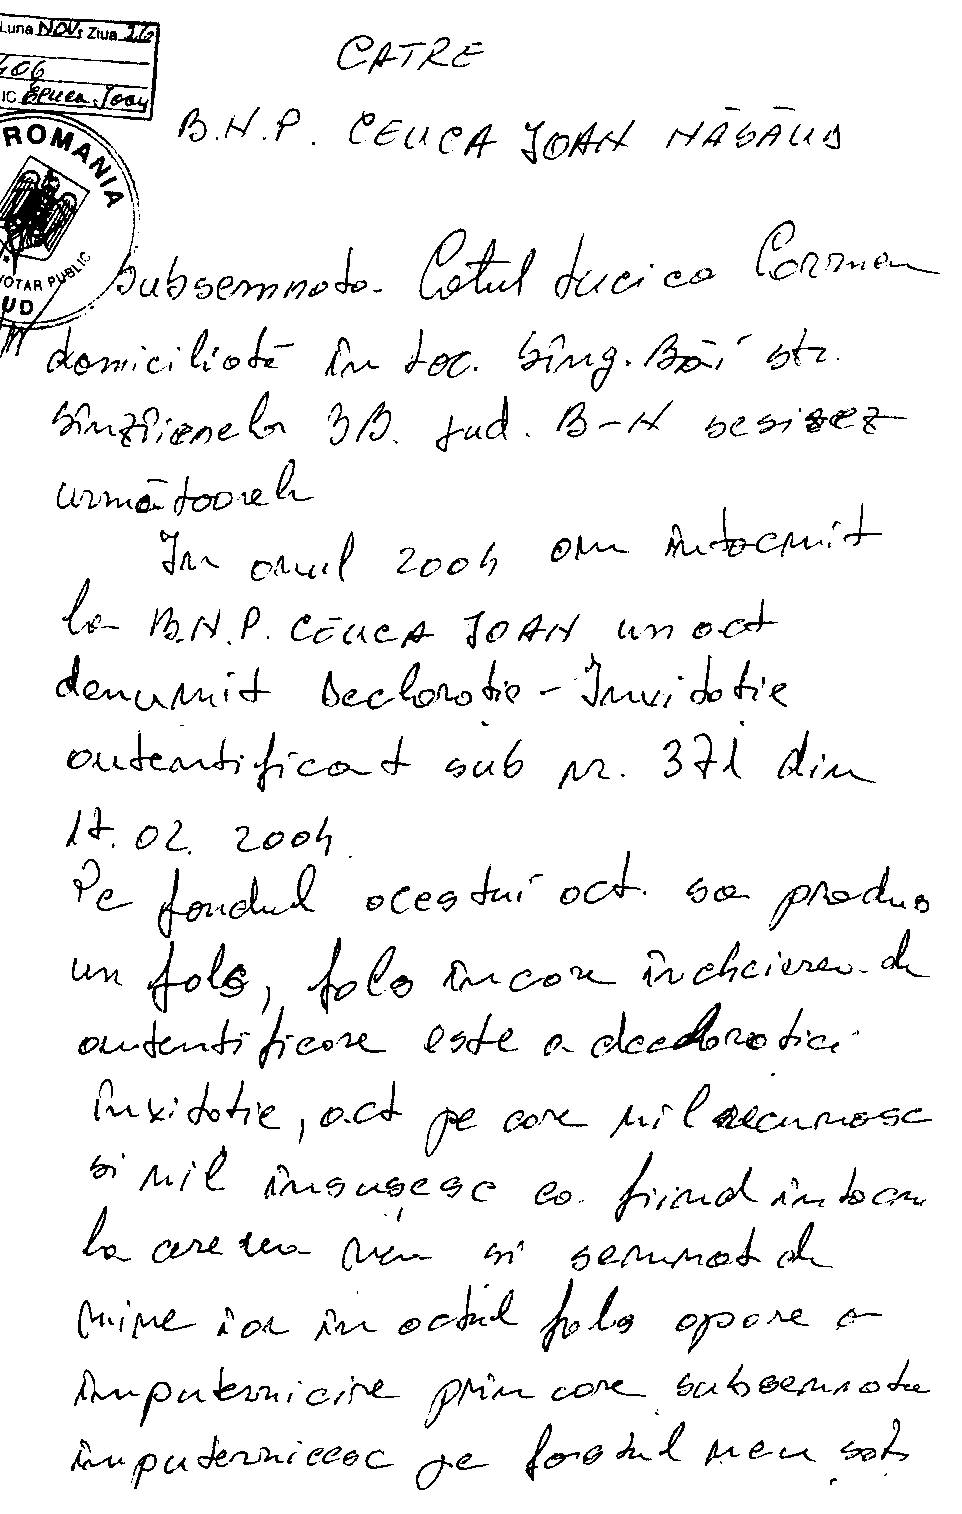 Luna NOV. Ziua 26
406
IC Ceuca Ioan
ROMANIA
NOTAR PUBLIC
UD
CATRE
B.N.P. CEUCA IOAN NĂSĂUD
Subsemnata Catul Lucica Carmen
domiciliată în loc. Sîng. Băi str.
Sînzîienelor 3B. jud. B-N sesisez
următoarele
In anul 2004 am întocmit
la B.N.P. CEUCA IOAN un act
denumit Declaratie - Invitatie
autentificat sub nr. 371 din
17.02.2004
Pe fondul acestui act sa produs
un fals, fals încare închcierea de
autentificare este a declaratiei
invitatie, act pe care mil recunosc
si mil însușesc ca fiind întocm
la cererea mea si semnat de
mine iar în actul fals apare o
împuternicire prin care subsemnata
împuternicesc pe fostul meu soț